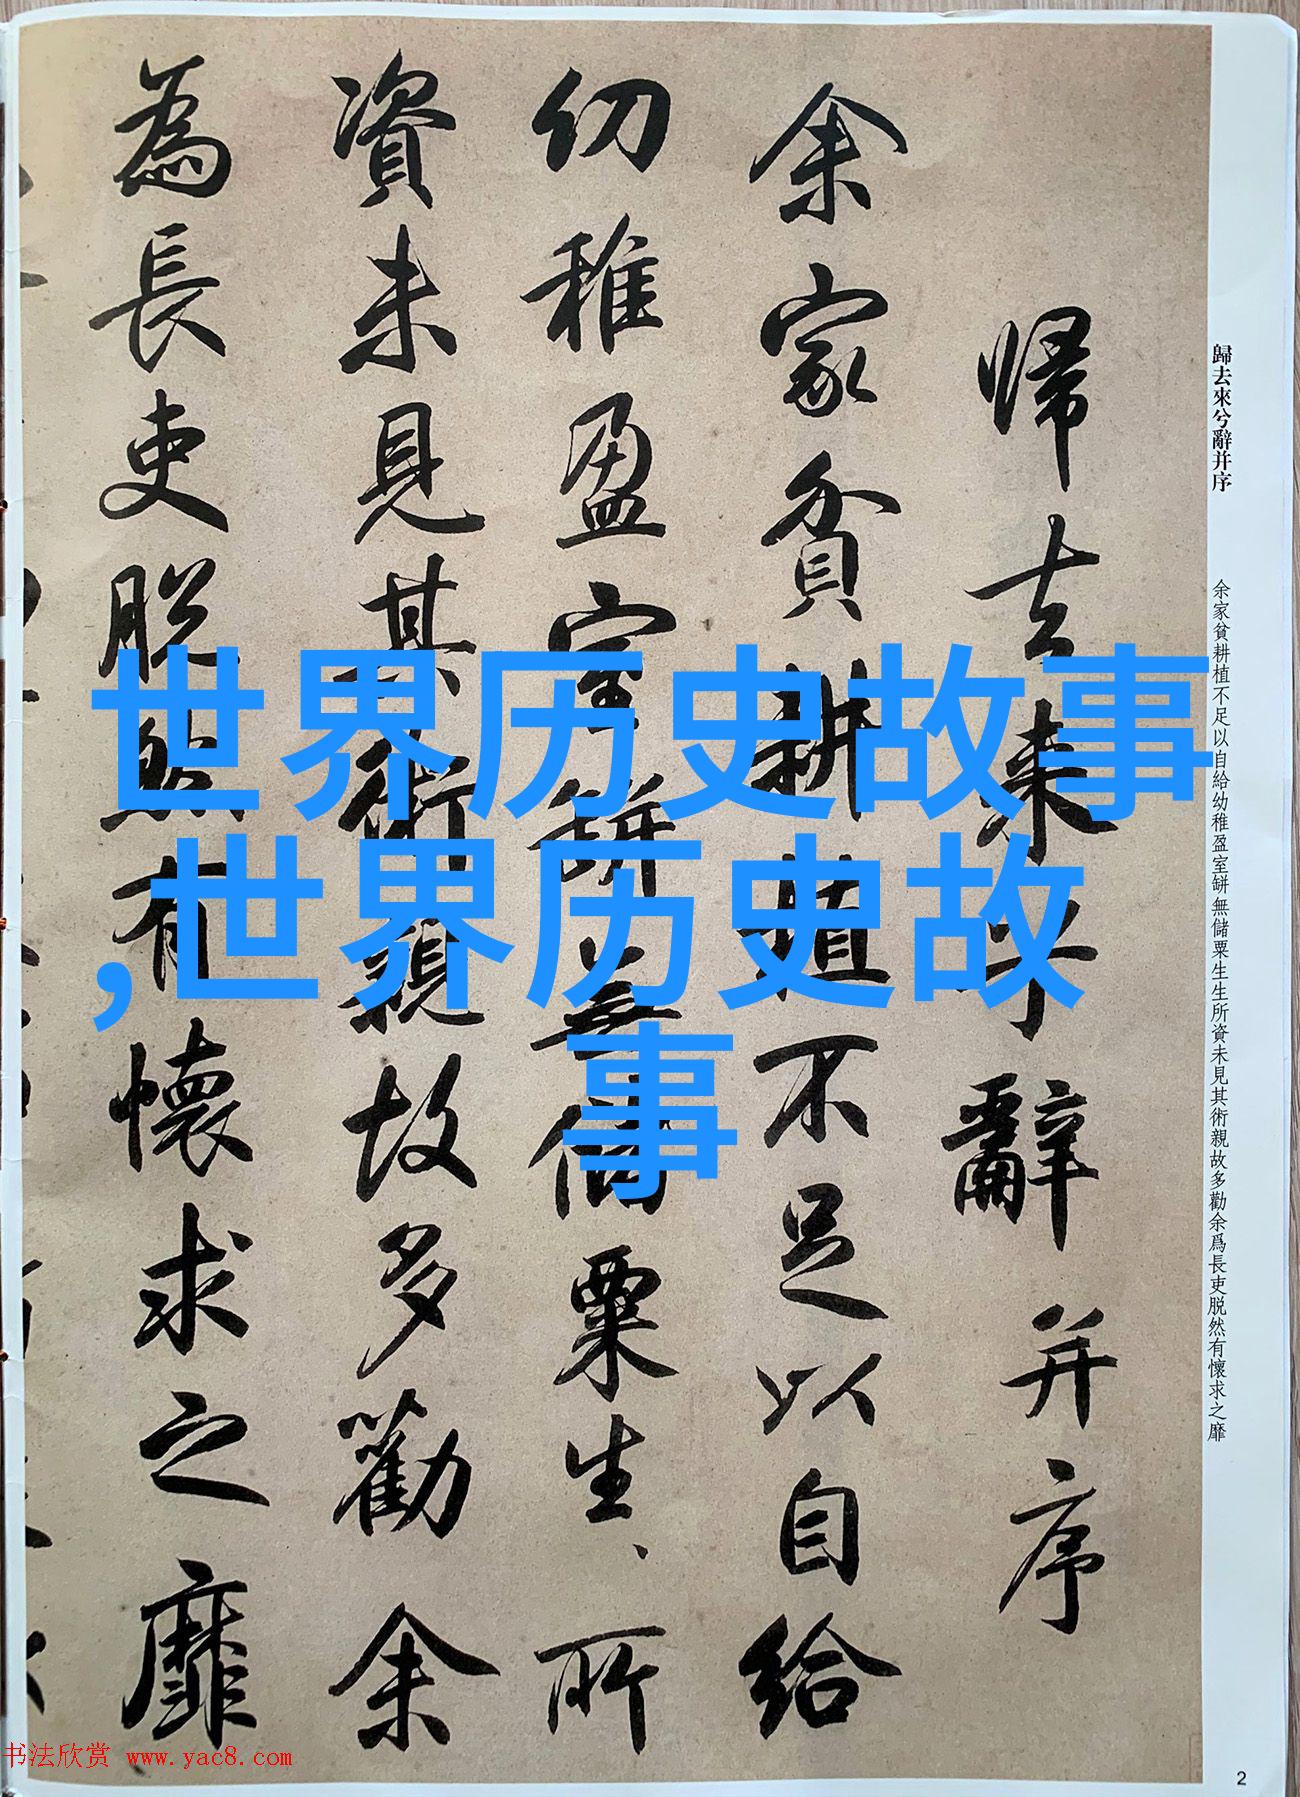 世界历史故事
,世界历史故
事
歸去來兮辭并序
余家貧耕植不足以自給幼稚盈室缾無儲粟生生所資未見其術親故多勸余爲長吏脱然有懷求之靡
帰去来兮辭并序
余家貧耕植不足以自給
幼稚盈室缾無儲粟生、所
資未見其術親故多勸余
為長吏脱然有懷求之靡
书法欣赏 www.yac8.com
2